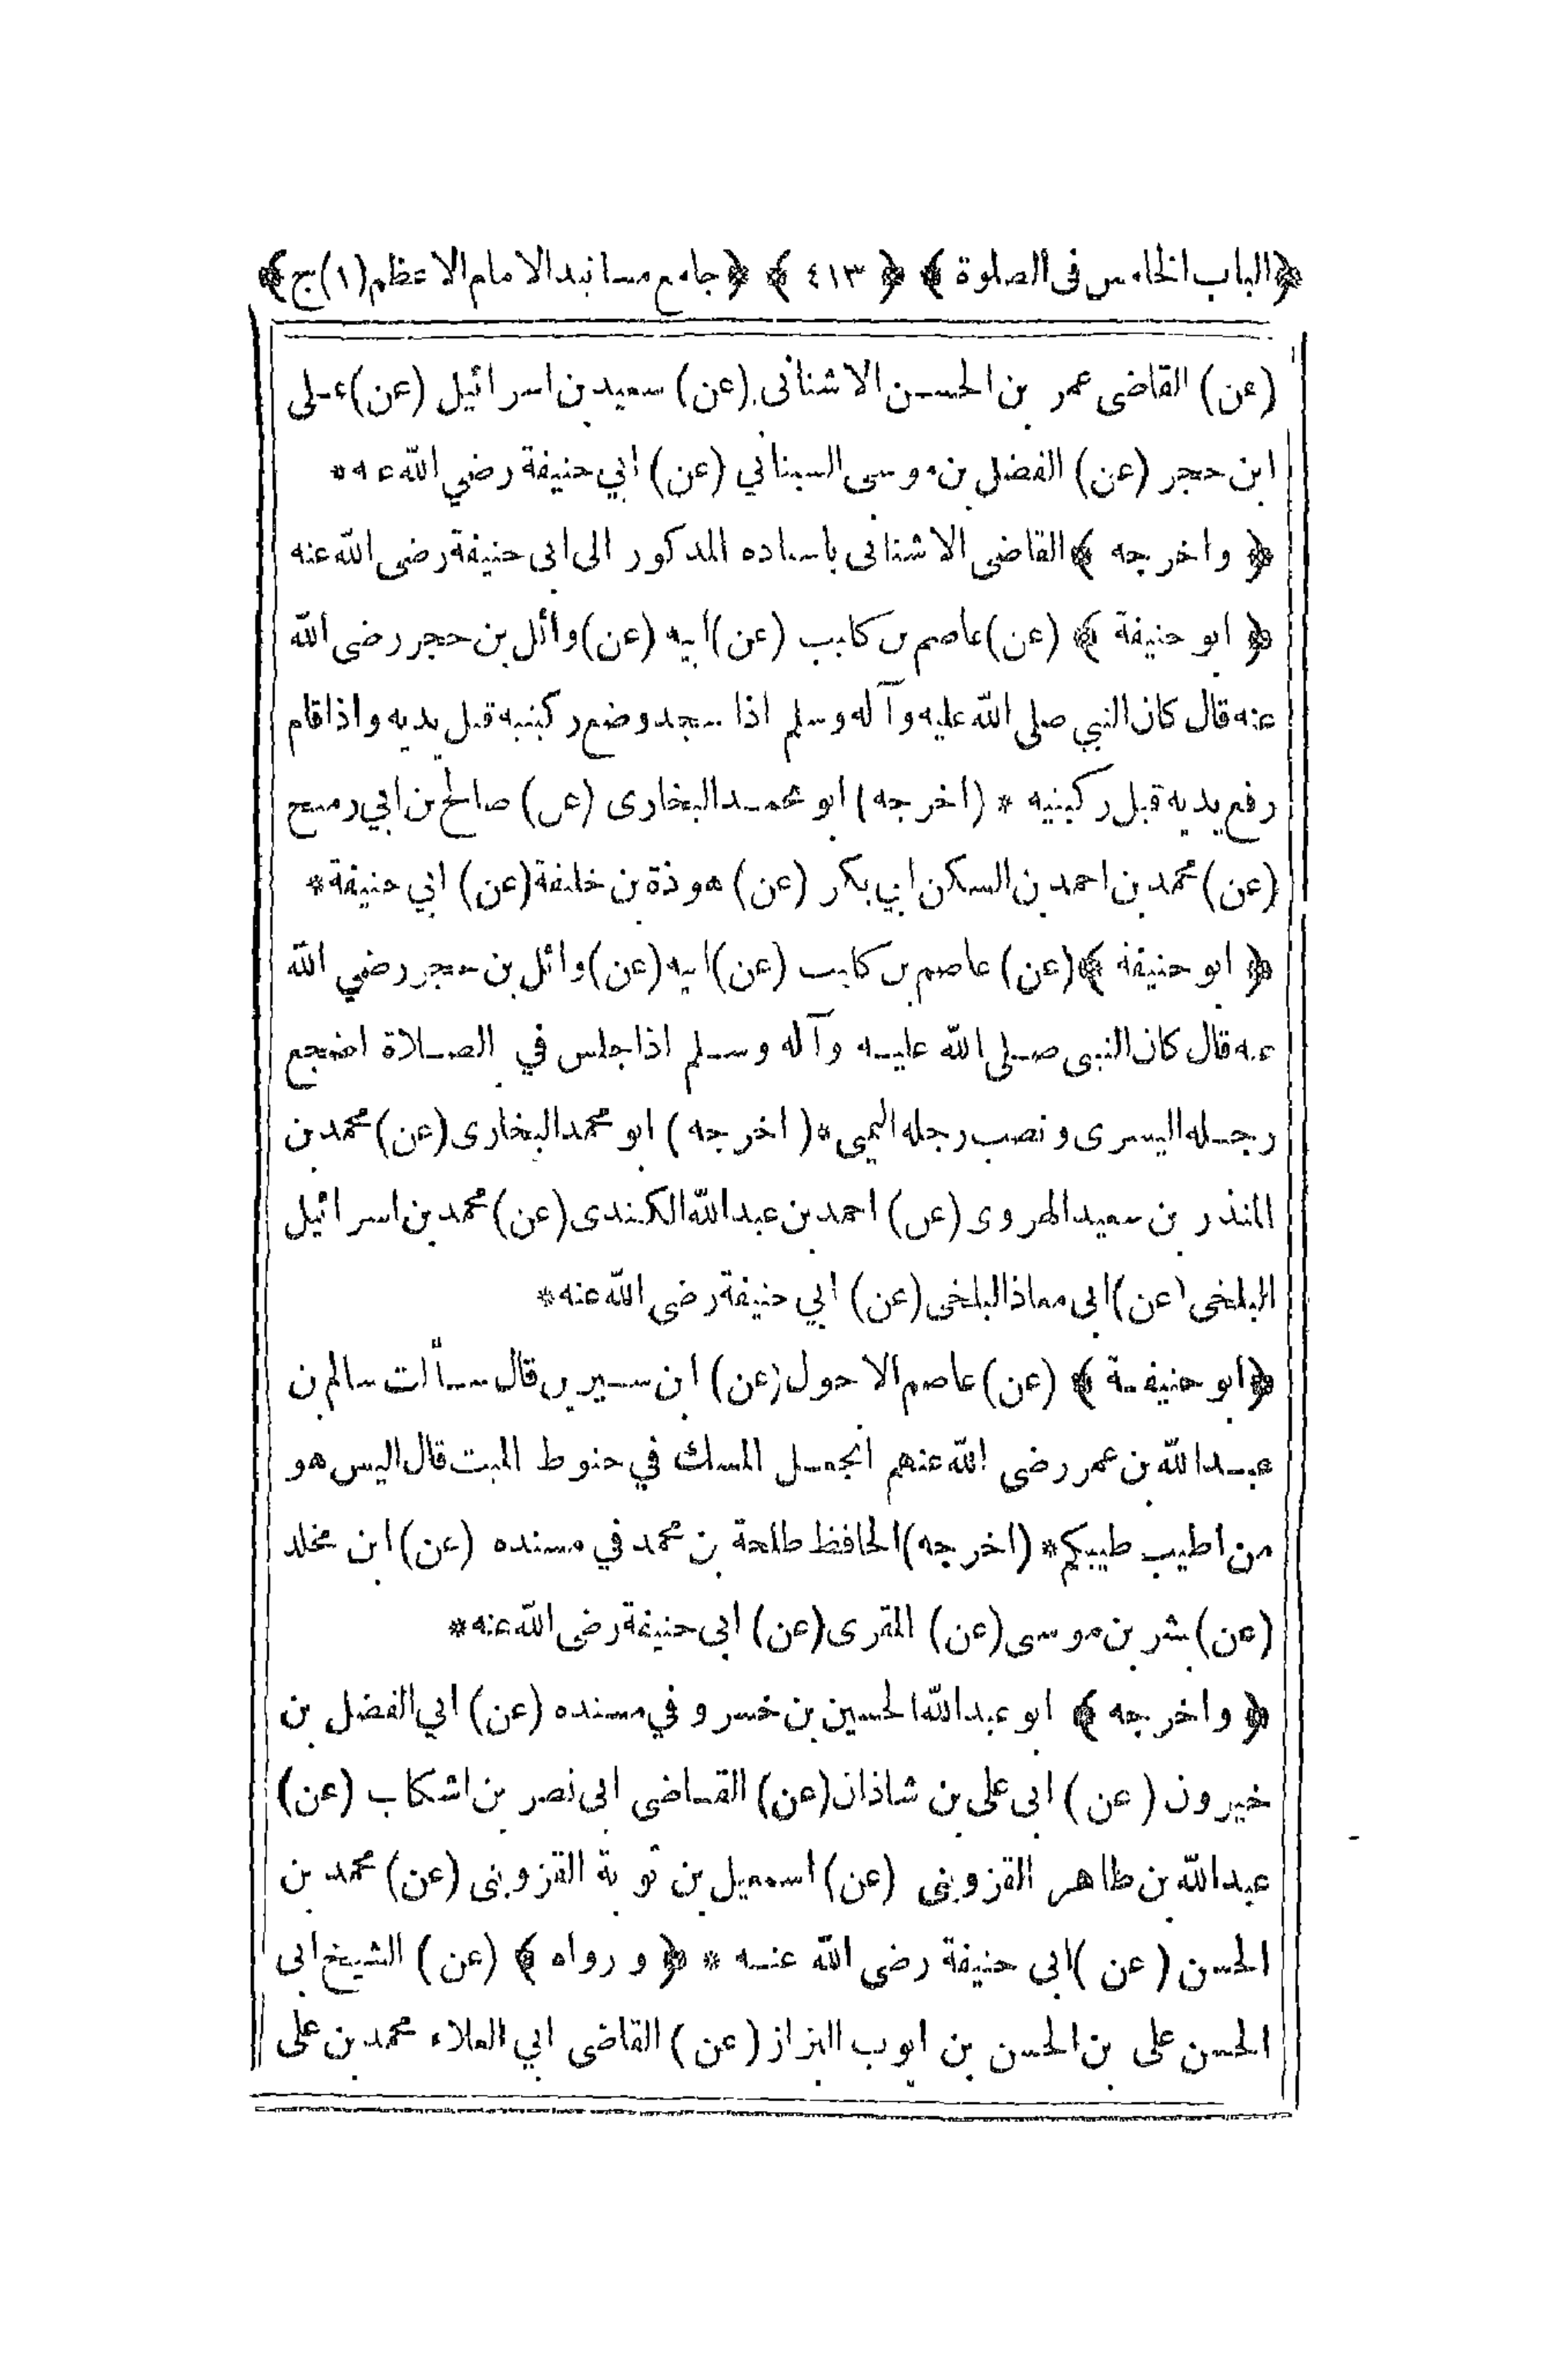 ﴿الباب الخامس فى الصلوة﴾ ﴿٤١٣﴾ ﴿جامع مسانيد الامام الاعظم(١)ج﴾
(عن) القاضى عمر بن الحسن الاشنانى (عن) سعيد بن اسرائيل (عن) على
ابن حجر (عن) الفضل بن موسى السينانى (عن) ابي حنيفة رضي الله عنه*
﴿واخرجه﴾ القاضى الاشنانى باسناده المذكور الى ابى حنيفة رضى الله عنه
﴿ابو حنيفة﴾ (عن) عاصم بن كليب (عن) ابيه (عن) وائل بن حجر رضى الله
عنه قال كان النبي صلى الله عليه وآله وسلم اذا سجد وضع ركبتيه قبل يديه واذا قام
رفع يديه قبل ركبتيه * (اخرجه) ابو محمد البخارى (عن) صالح بن ابي رميح
(عن) محمد بن احمد بن السكن ابي بكر (عن) هوذة بن خليفة (عن) ابي حنيفة*
﴿ابو حنيفة﴾ (عن) عاصم بن كليب (عن) ابيه (عن) وائل بن حجر رضي الله
عنه قال كان النبى صلى الله عليه وآله وسلم اذا جلس في الصلاة اضجع
رجله اليسرى ونصب رجله اليمنى* (اخرجه) ابو محمد البخارى (عن) محمد بن
المنذر بن سعيد الهروى (عن) احمد بن عبد الله الكندى (عن) محمد بن اسرائيل
البلخى (عن) ابى معاذ البلخى (عن) ابي حنيفة رضى الله عنه*
﴿ابو حنيفة﴾ (عن) عاصم الاحول (عن) ابن سيرين قال سألت سالم بن
عبد الله بن عمر رضى الله عنهم انجعل المسك في حنوط الميت قال اليس هو
من اطيب طيبكم* (اخرجه) الحافظ طلحة بن محمد في مسنده (عن) ابن مخلد
(عن) بشر بن موسى (عن) المقرى (عن) ابى حنيفة رضى الله عنه*
﴿واخرجه﴾ ابو عبد الله الحسين بن خسرو في مسنده (عن) ابي الفضل بن
خيرون (عن) ابى على بن شاذان (عن) القاضى ابى نصر بن اشكاب (عن)
عبد الله بن طاهر القزوينى (عن) اسمعيل بن توبة القزوينى (عن) محمد بن
الحسن (عن) ابى حنيفة رضى الله عنه * ﴿ورواه﴾ (عن) الشيخ ابى
الحسن على بن الحسن بن ايوب البزاز (عن) القاضى ابي العلاء محمد بن على